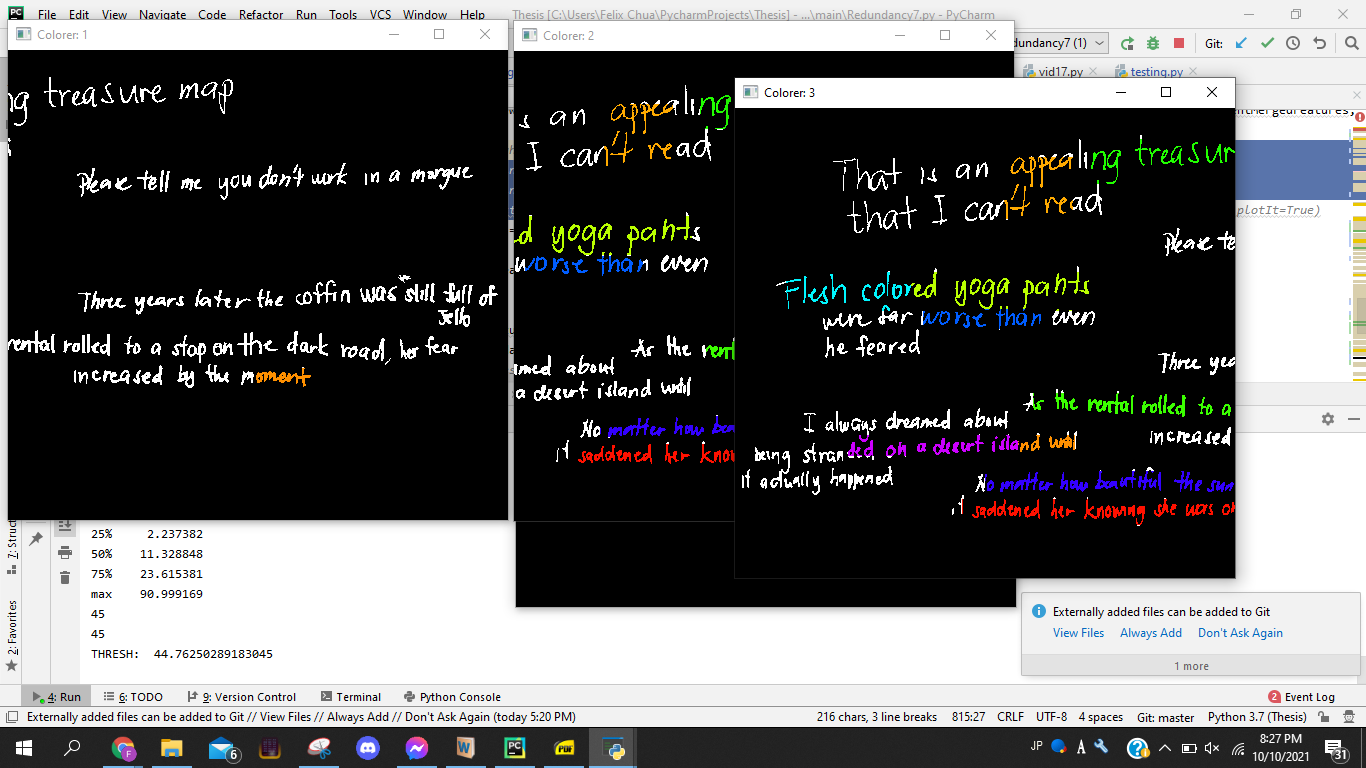 File Edit View Navigate Code Refactor Run Tools VCS Window Help Thesis [C:\Users\Felix Chua\PycharmProjects\Thesis] - ...\main\Redundancy7.py - PyCharm
Colorer: 1
ng treasure map
Please tell me you don't work in a morgue
Three years later the coffin was still full of
Jello
rental rolled to a stop on the dark road, her fear
increased by the moment
Colorer: 2
s an appealing
I can't read
d yoga pants
worse than even
As the rent
amed about
a desert island until
No matter how bea
it saddened her know
Colorer: 3
That is an appealing treasur
that I can't read
Please te
Flesh colored yoga pants
were far worse than even
he feared
Three yea
As the rental rolled to a
I always dreamed about
increased
being stranded on a desert island until
it actually happened
No matter how beautiful the sun
it saddened her knowing she was o
dundancy7 (1) Git:
vid17.py testing.py
ntMergedFeatures,
plotIt=True)
7: Struct
2: Favorites
25% 2.237382
50% 11.328848
75% 23.615381
max 90.999169
45
45
THRESH: 44.76250289183045
Externally added files can be added to Git
View Files Always Add Don't Ask Again
1 more
4: Run 6: TODO 9: Version Control Terminal Python Console 2 Event Log
Externally added files can be added to Git // View Files // Always Add // Don't Ask Again (today 5:20 PM) 216 chars, 3 line breaks 815:27 CRLF UTF-8 4 spaces Git: master Python 3.7 (Thesis)
F 6 W PC PDF JP A 8:27 PM
10/10/2021 31